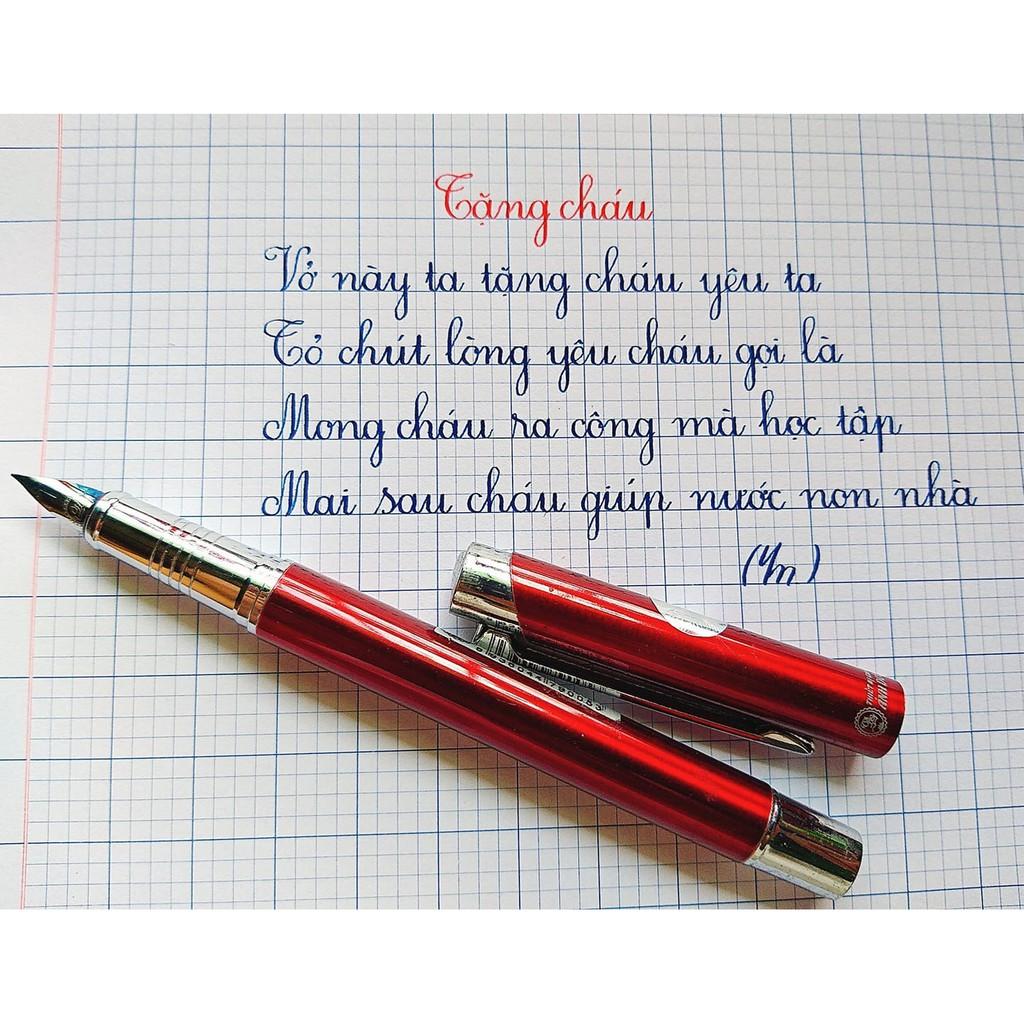 Tặng cháu
Vở này ta tặng cháu yêu ta
Tỏ chút lòng yêu cháu gọi là
Mong cháu ra công mà học tập
Mai sau cháu giúp nước non nhà